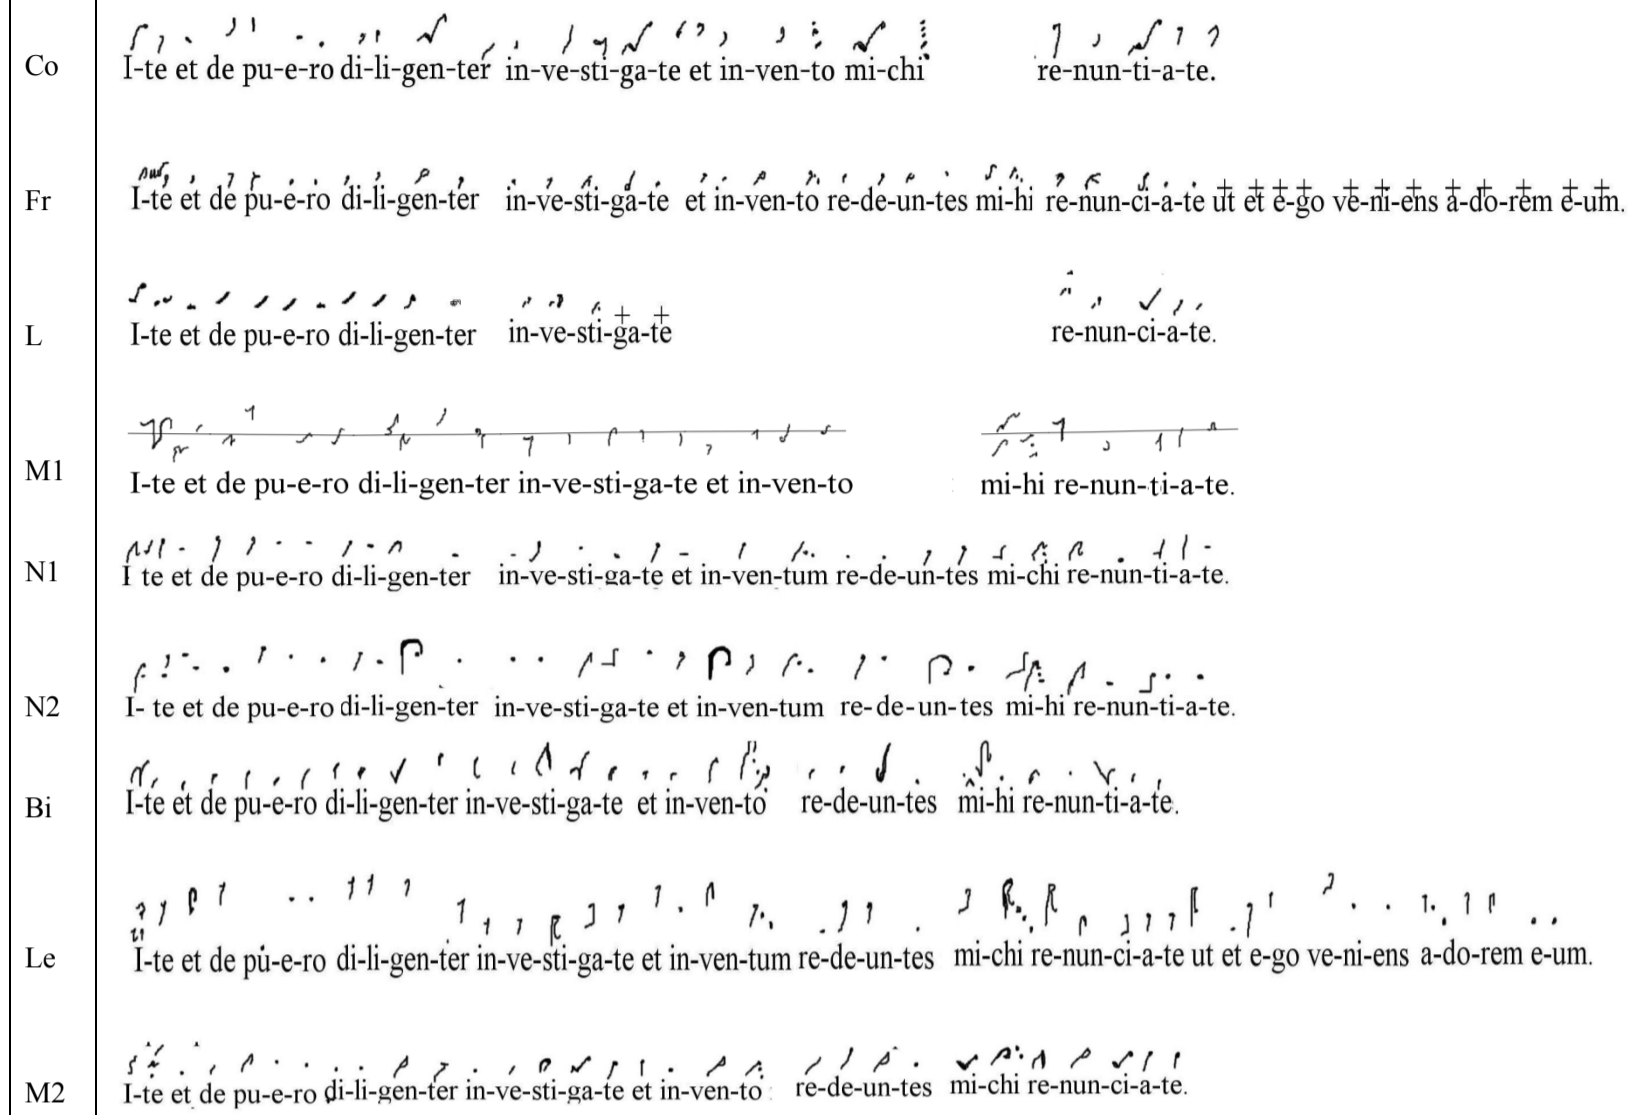 Co I-te et de pu-e-ro di-li-gen-ter in-ve-sti-ga-te et in-ven-to mi-chi re-nun-ti-a-te.
Fr I-te et de pu-e-ro di-li-gen-ter in-ve-sti-ga-te et in-ven-to re-de-un-tes mi-hi re-nun-ci-a-te ut et e-go ve-ni-ens a-do-rem e-um.
L I-te et de pu-e-ro di-li-gen-ter in-ve-sti-ga-te re-nun-ci-a-te.
M1 I-te et de pu-e-ro di-li-gen-ter in-ve-sti-ga-te et in-ven-to mi-hi re-nun-ti-a-te.
N1 I te et de pu-e-ro di-li-gen-ter in-ve-sti-ga-te et in-ven-tum re-de-un-tes mi-chi re-nun-ti-a-te.
N2 I- te et de pu-e-ro di-li-gen-ter in-ve-sti-ga-te et in-ven-tum re-de-un-tes mi-hi re-nun-ti-a-te.
Bi I-te et de pu-e-ro di-li-gen-ter in-ve-sti-ga-te et in-ven-to re-de-un-tes mi-hi re-nun-ti-a-te.
Le I-te et de pu-e-ro di-li-gen-ter in-ve-sti-ga-te et in-ven-tum re-de-un-tes mi-chi re-nun-ci-a-te ut et e-go ve-ni-ens a-do-rem e-um.
M2 I-te et de pu-e-ro di-li-gen-ter in-ve-sti-ga-te et in-ven-to re-de-un-tes mi-chi re-nun-ci-a-te.